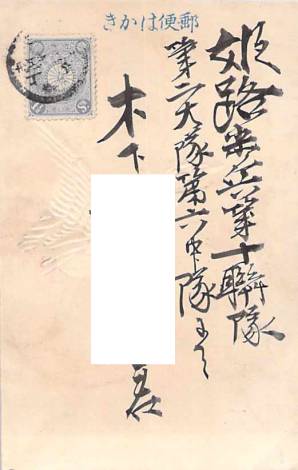 郵便はかき
姫路歩兵第十聯隊
第二大隊第六中隊にて
木下